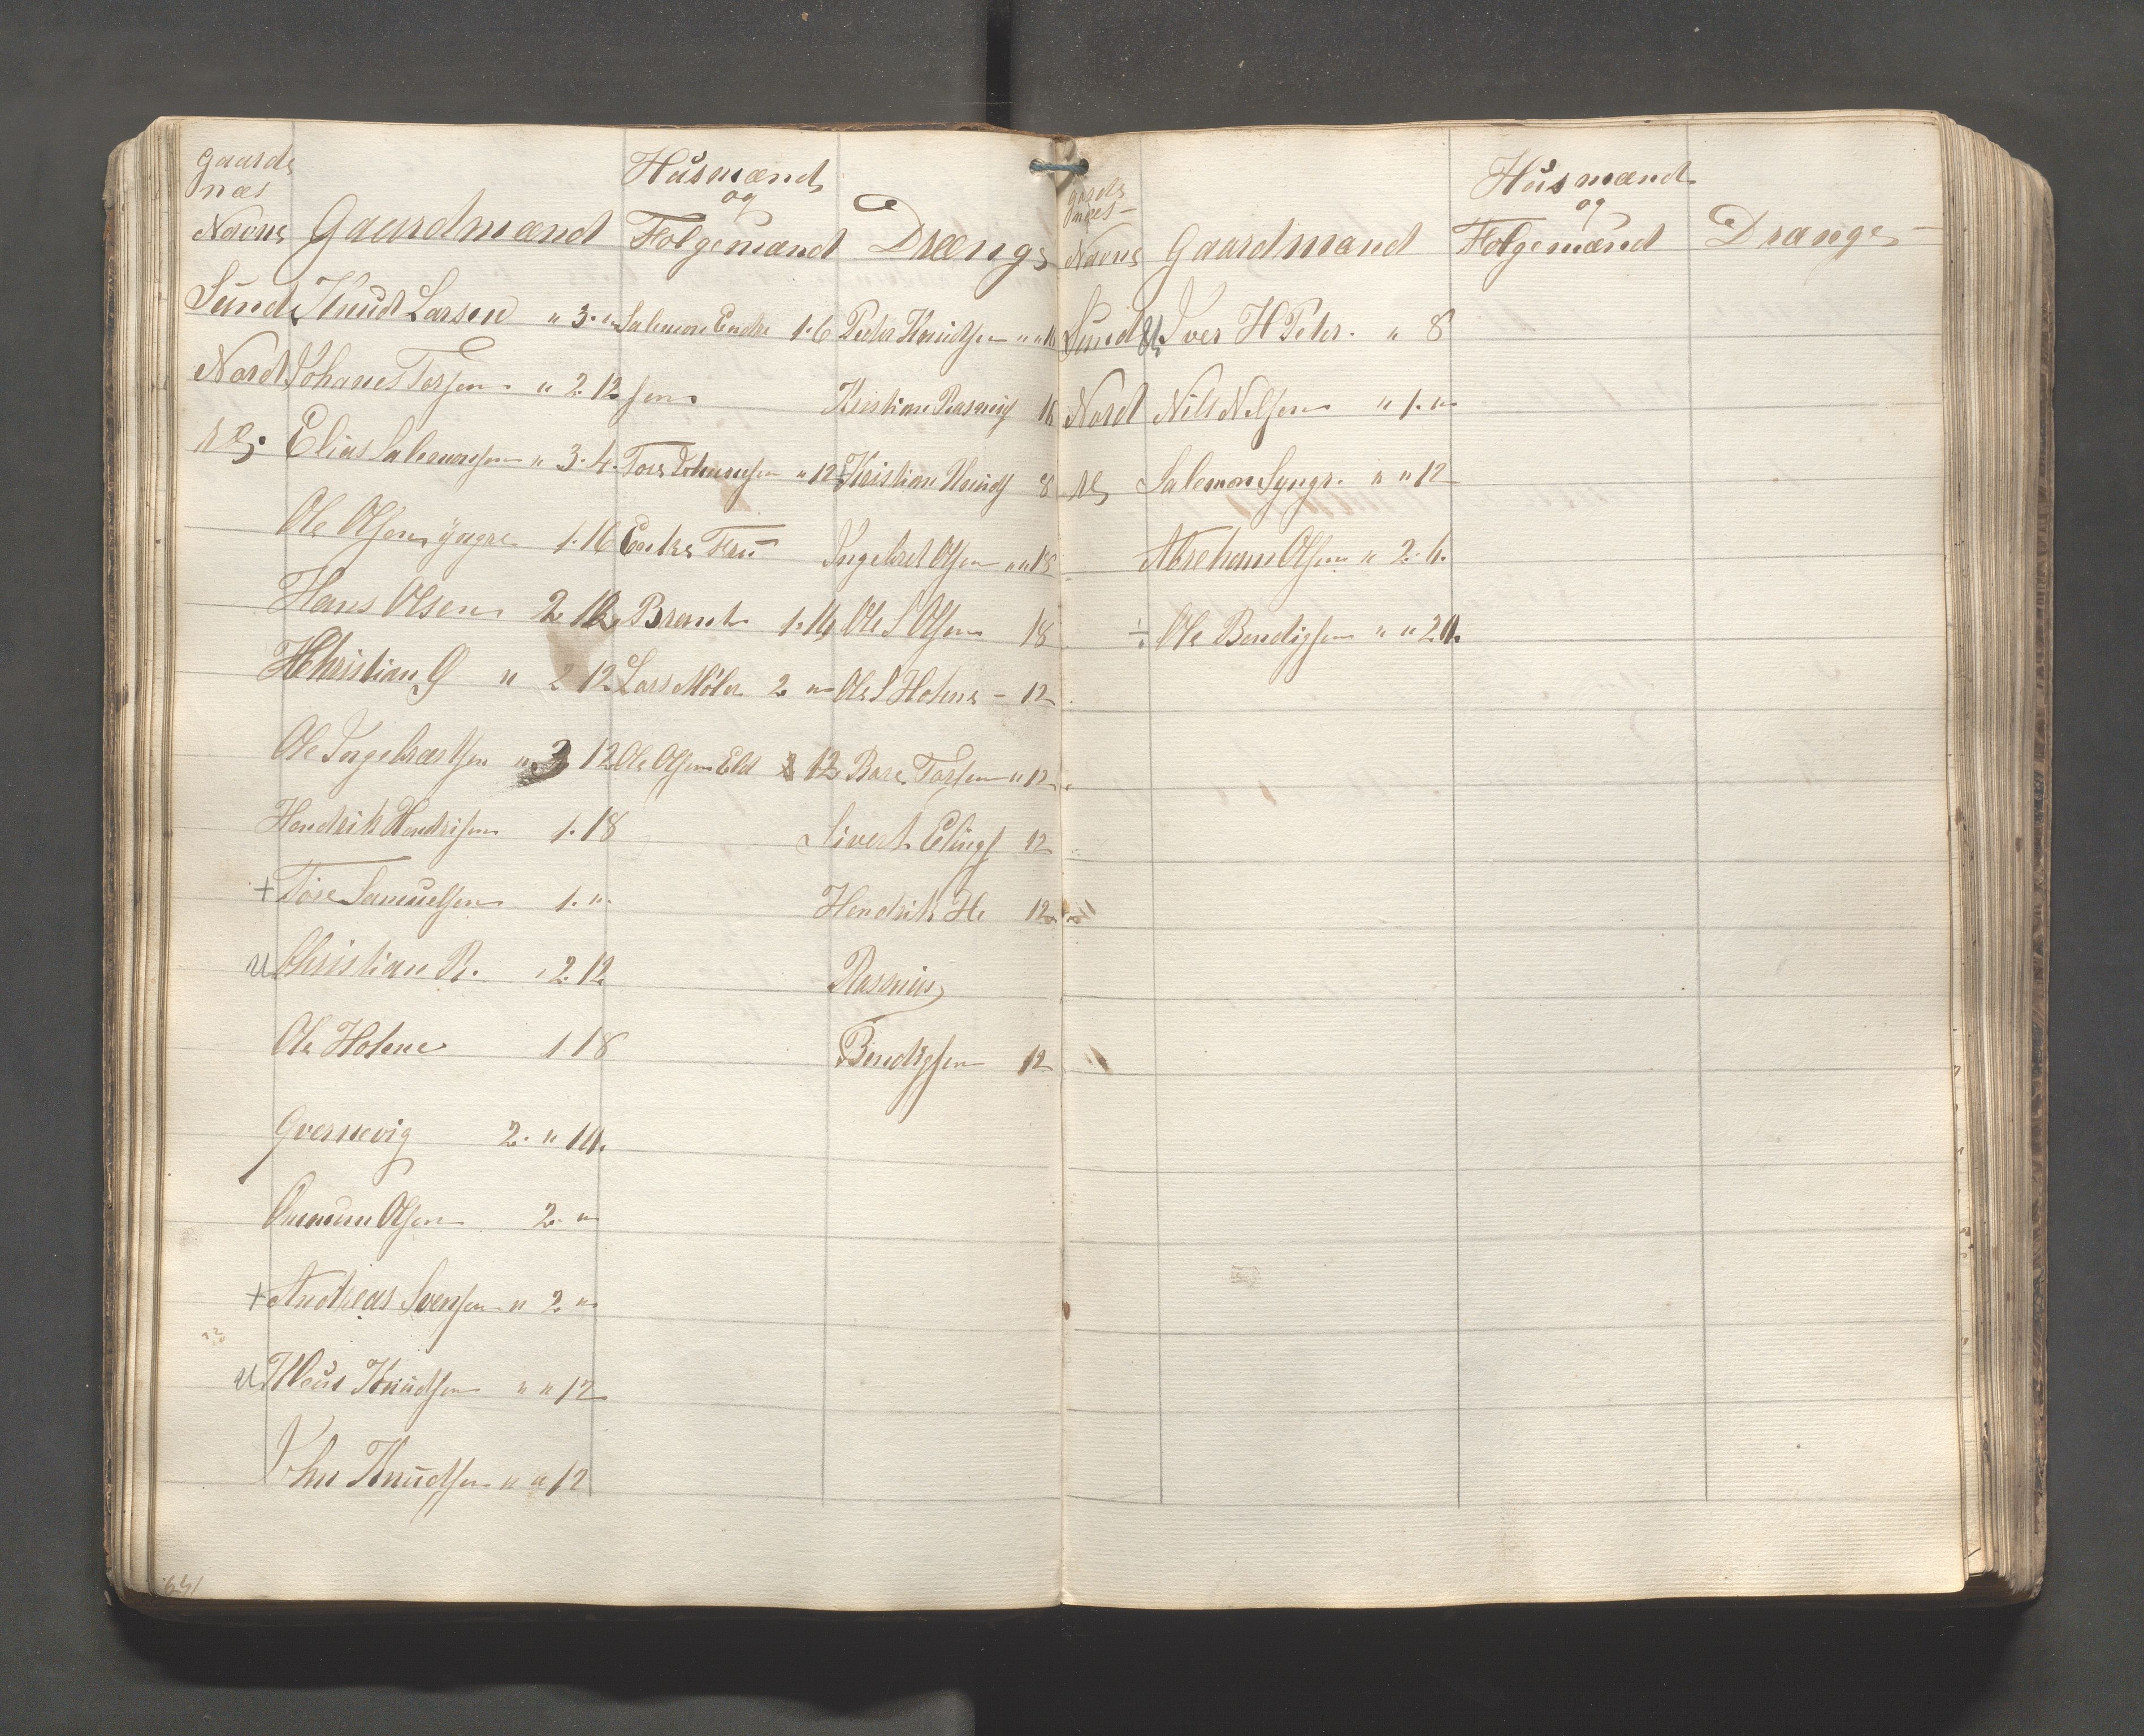 Gaards
næs
Navne Gaardmænd Husmænd og Folgemænd Drænge
Sunde Knudt Larsen " 3. " Salemon Endre 1.6 Peder Knudtsen " " 16
Nord Johanes Torsen " 2. 12 sen Kristian Rasmus 16
Elias Salemonsen " 3. 4. Tore Johanesen " 12 Kristian Knuds 8
Ole Olsen yngre 1. 16 Enke Fru Ingebret Olsen " " 18
Hans Olsen 2 12 Brant 1. 14 Ole S Olsen 18
Christian G " 2 12 Lars Møler 2 " Ole S Holene – 12
Ole Ingebrætsen " 3 12 Ole Olsen Eld 12 Bare Torsen " 12
Hendrik Hendrisen 1. 18 Sivert Elings 12
+ Tore Samuelsen 1. " Hendrik He 12
u Christian R. 2. 12 Rasmus
Ole Holene 1 18 Bendigsen 12
Qvernevig 2. " 14.
Ommun Olsen 2. "
+ Andreas Svensen " 2 "
u Kleus Knudsen " " 12
John Knudsen " " 12
641
Gaards
næs –
Navne Gaardmænd Husmænd og Folgemænd Drænge –
Sund Iver H Peter. " 8
Nord Nils Nelsen " 1. "
Salemon Syngr. " " 12
Abreham Olsen " 2. 4.
÷ Ole Bendigsen " " 20.